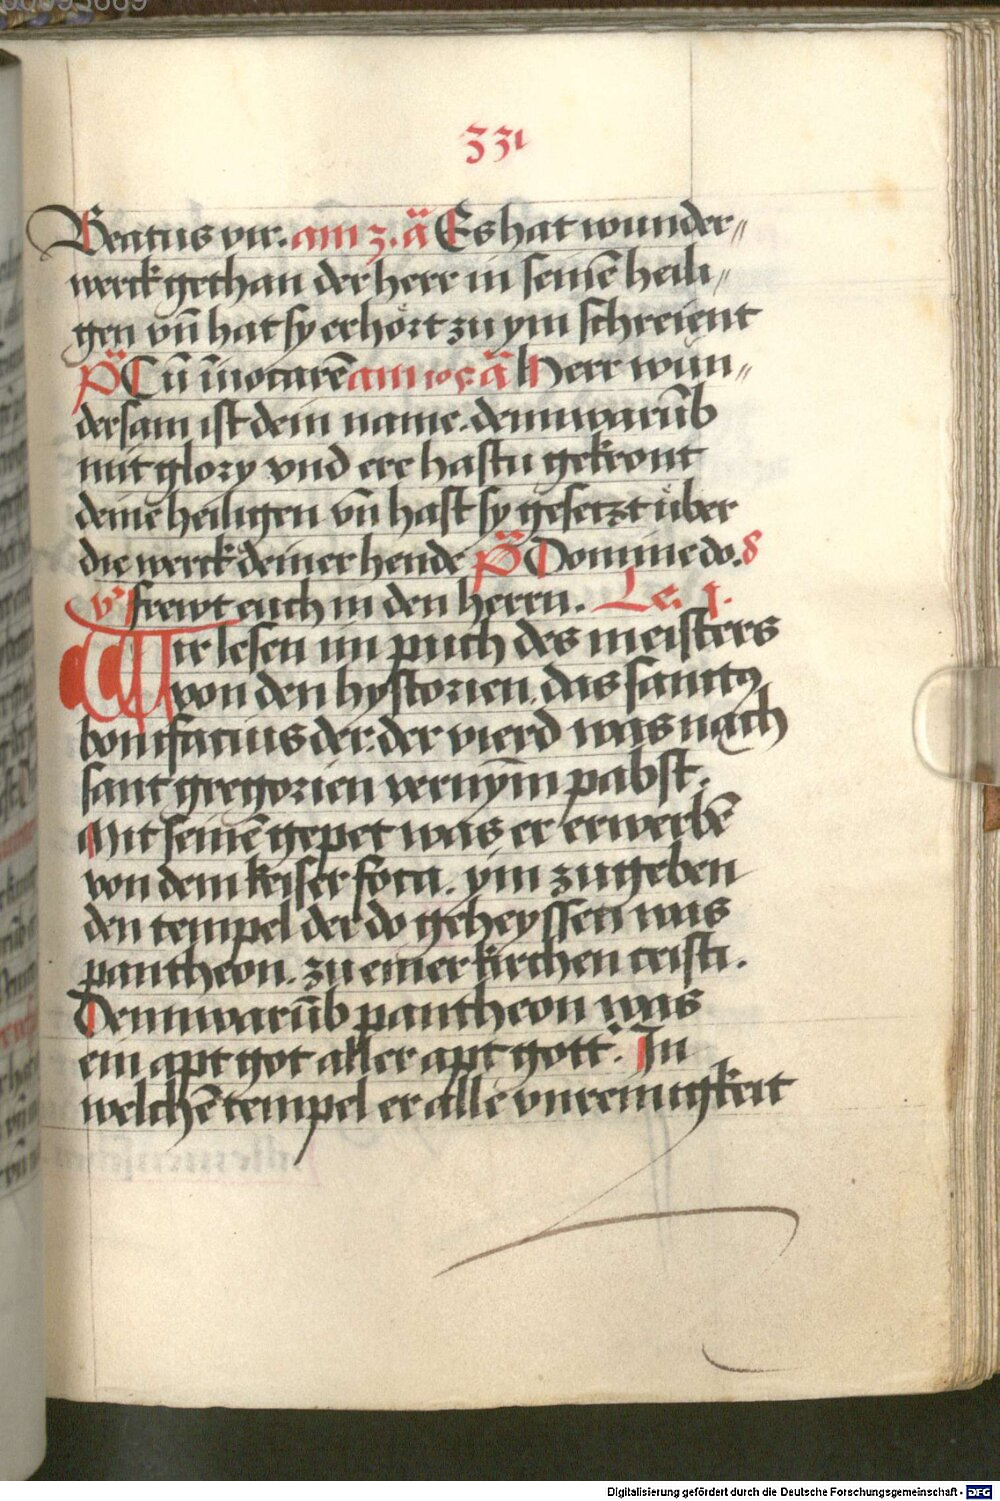 331
Beatus vir. am 3. ä Es hat wunder〃
werck gethan der herr in seinē heili〃
gen vn̄ hat sy erhört zu ym schreient
p̈s Cū īuocarē am 10 c. ä Herr wun〃
dersam ist dein name. dennwarūb
mit glory vnd ere hastu gekront
deinē heiligen vn̄ hast sy gesetzt über
die werck deiner hende p̈s Domine do. 8
v̄s frewt euch in den herrn. Le. 1.
Wir lesen im puch des meisters
von den hystorien. das sanctꝰ
bonifacius der. der vierd was nach
sant gregorien vernym̄ pabst.
Mit seinē gepet was er erwerbē
von dem keiser foca. ym zugeben
den tempel der do geheyssen was
pantheon. zu einer kirchen cristi.
Dennwarūb pantheon was
ein apt got aller apt gott. In
welchē tempel er alle vnreinigkeit
Digitalisierung gefördert durch die Deutsche Forschungsgemeinschaft - DFG